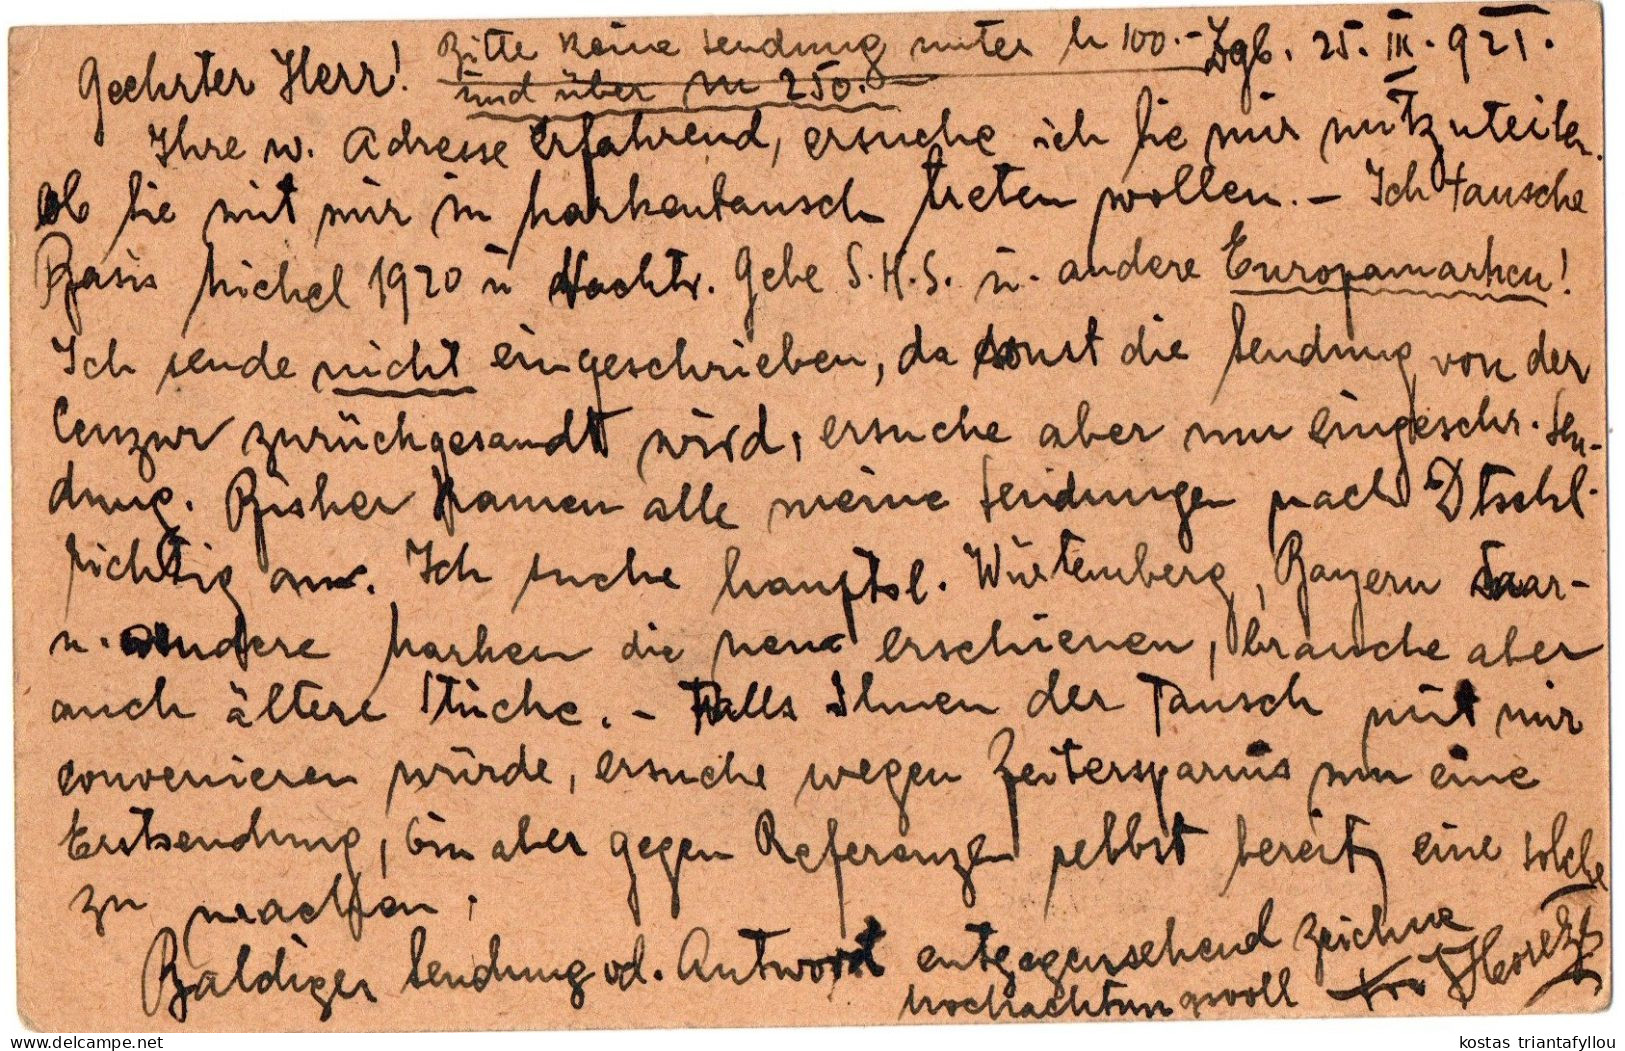 Bitte keine Sendung unter M 100.- Zgb. 25. III. 921.
Geehrter Herr! und über M 250.-
Ihre w. Adresse erfahrend, ersuche ich Sie mir mitzuteilen.
ob Sie mit mir in Markentausch treten wollen. - Ich tausche
Basis Michel 1920 u Nachtr. Gebe S.H.S. u. andere Europamarken!
Ich sende nicht eingeschrieben, da sonst die Sendung von der
Cenzur zurückgesandt wird, ersuche aber um eingeschr. Sen-
dung. Bisher kamen alle meine Sendungen nach Dtschl.
richtig an. Ich suche hauptsl. Würtemberg, Bayern Saar-
u. andere Marken die neu erschienen, brauche aber
auch ältere Stücke. - Falls Ihnen der Tausch mit mir
convenieren würde, ersuche wegen Zeitersparnis um eine
Erstsendung, bin aber gegen Referenzen selbst bereit eine solche
zu machen.
Baldiger Sendung od. Antwort entgegensehend zeichne
hochachtungsvoll
kostas triantafyllou
delcampe.net